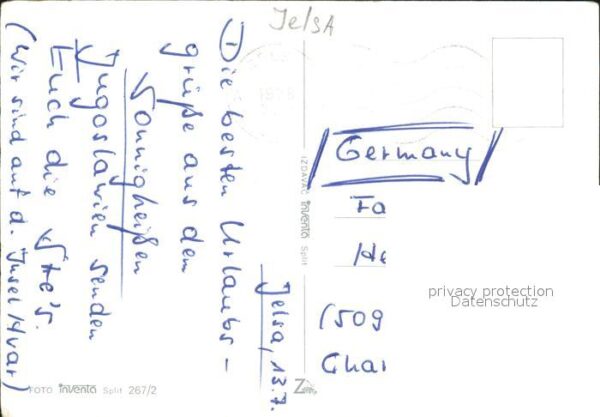 Jelsa
Jelsa, 13.7.
Die besten Urlaubs-
grüße aus dem
sonnigheißen
Jugoslawien senden
Euch die
(Wir sind auf d. Insel Hvar)
Germany
Fa
He
(509
Char
privacy protection
Datenschutz
IZDAVAČ inventa Split
FOTO inventa Split 267/2